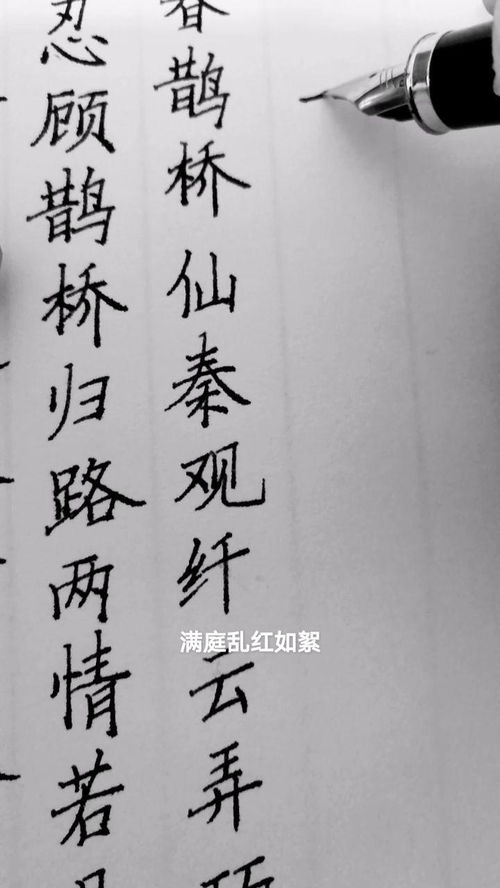 鹊桥仙秦观纤云弄巧
忍顾鹊桥归路两情若
满庭乱红如絮